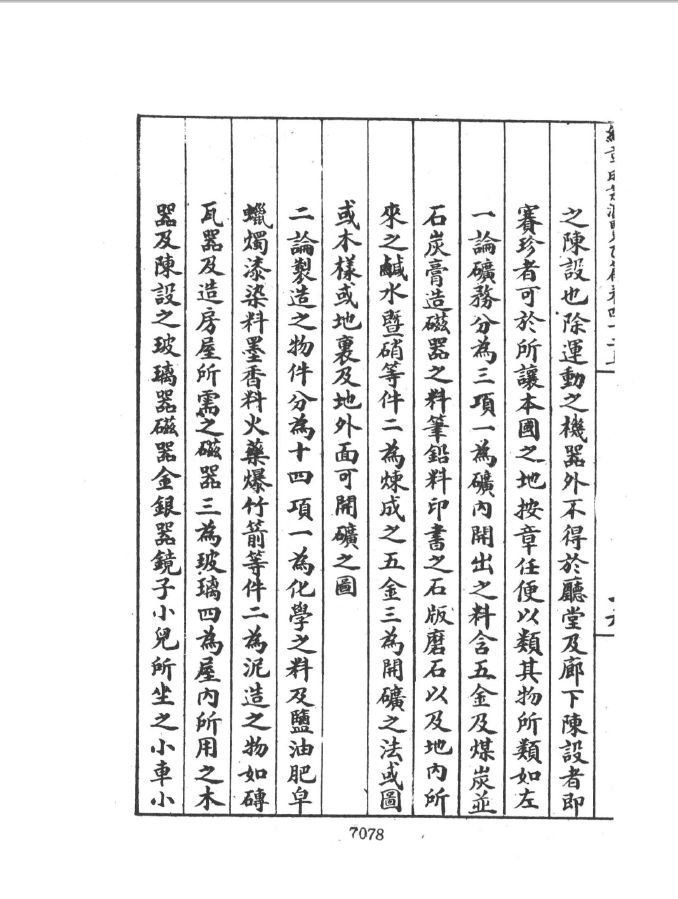 之陳設也除運動之機器外不得於廳堂及廊下陳設者即
賽珍者可於所讓本國之地按章任便以類其物所類如左
一論礦務分為三項一為礦內開出之料含五金及煤炭並
石炭膏造磁器之料筆鉛料印書之石版磨石以及地內所
來之鹹水暨硝等件二為煉成之五金三為開礦之法或圖
或木樣或地裏及地外面可開礦之圖
二論製造之物件分為十四項一為化學之料及鹽油肥皁
蠟燭漆染料墨香料火藥爆竹箭等件二為泥造之物如磚
瓦器及造房屋所需之磁器三為玻璃四為屋內所用之木
器及陳設之玻璃器磁器金銀器鏡子小兒所坐之小車小
7078